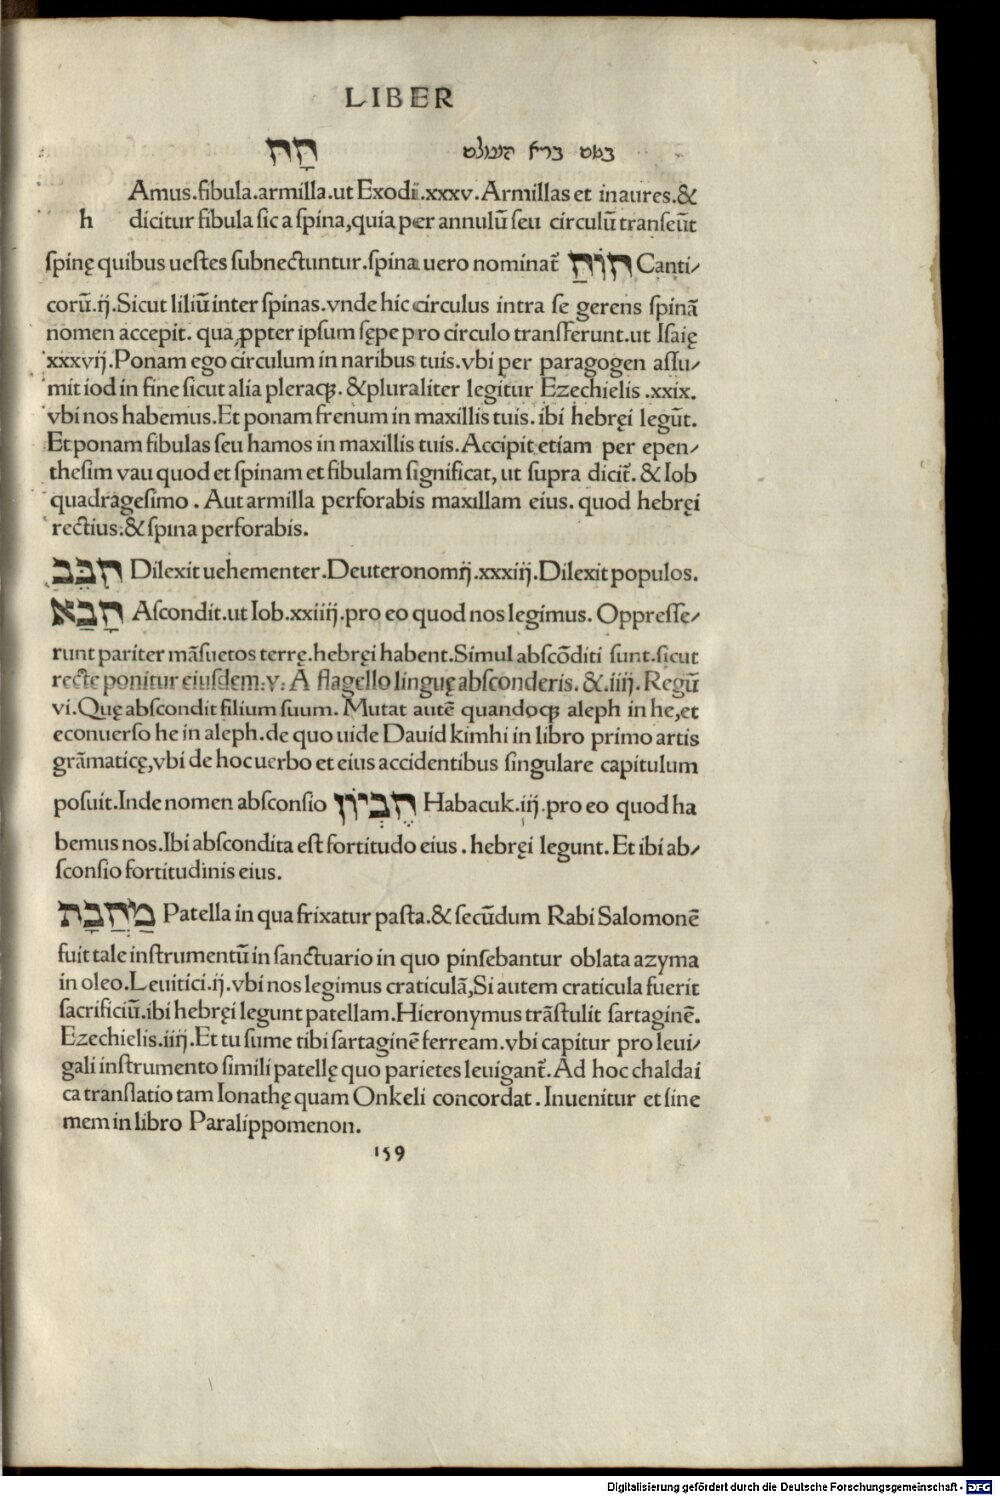 LIBER
חָח בשם ברא העולם
Amus.fibula.armilla.ut Exodi.xxxv.Armillas et inaures.&
h dicitur fibula sic a spina,quia per annulū seu circulū transeūt
spinę quibus uestes subnectuntur.spina uero nominat᷑ חוֹחַ Canti/
corū.ij.Sicut liliū inter spinas.vnde hic circulus intra se gerens spinā
nomen accepit. qua ꝓpter ipsum sępe pro circulo transferunt.ut Isaię
xxxvij.Ponam ego circulum in naribus tuis.vbi per paragogen assu/
mit iod in fine sicut alia pleraqꝫ. &pluraliter legitur Ezechielis .xxix.
vbi nos habemus.Et ponam frenum in maxillis tuis. ibi hebręi legūt.
Et ponam fibulas seu hamos in maxillis tuis.Accipit etiam per epen/
thesim vau quod et spinam et fibulam significat, ut supra dicit᷑. & Iob
quadragesimo . Aut armilla perforabis maxillam eius. quod hebręi
rectius.& spina perforabis.
חִבֵּב Dilexit uehementer.Deuteronomij.xxxiij.Dilexit populos.
חָבַא Ascondit.ut Iob.xxiiij.pro eo quod nos legimus. Oppresse/
runt pariter māsuetos terrę.hebręi habent.Simul abscōditi sunt.sicut
recte ponitur eiusdem.v. A flagello linguę absconderis. &.iiij. Regū
vi.Quę abscondit filium suum. Mutat autē quandoqꝫ aleph in he,et
econuerso he in aleph.de quo uide Dauid kimhi in libro primo artis
grāmaticę,vbi de hoc uerbo et eius accidentibus singulare capitulum
posuit.Inde nomen absconsio חֶבְיוֹן Habacuk.iij.pro eo quod ha
bemus nos.Ibi abscondita est fortitudo eius . hebręi legunt. Et ibi ab/
sconsio fortitudinis eius.
מַחֲבַת Patella in qua frixatur pasta.& secūdum Rabi Salomonē
fuit tale instrumentū in sanctuario in quo pinsebantur oblata azyma
in oleo.Leuitici.ij.vbi nos legimus craticulā,Si autem craticula fuerit
sacrificiū.ibi hebręi legunt patellam.Hieronymus trāstulit sartaginē.
Ezechielis.iiij.Et tu sume tibi sartaginē ferream.vbi capitur pro leui/
gali instrumento simili patellę quo parietes leuigant᷑. Ad hoc chaldai
ca translatio tam Ionathę quam Onkeli concordat. Inuenitur et sine
mem in libro Paralippomenon.
159
Digitalisierung gefördert durch die Deutsche Forschungsgemeinschaft - DFG